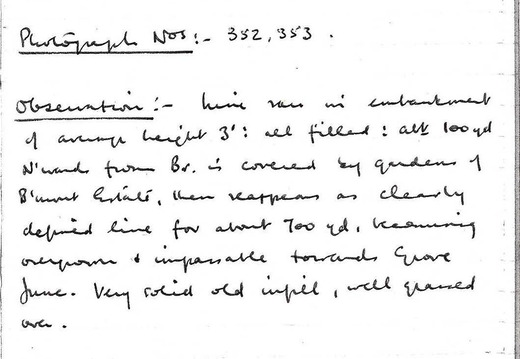 Photograph Nos:- 352, 353.
Observation:- Line ran in embankment
of average height 3': all filled: abt 100 yd
N'wards from Br. is covered by gardens of
Estate, then reappears as clearly
defined line for about 700 yd, becoming
overgrown & impassable towards Grove
June. Very solid old infill, well grassed
over.